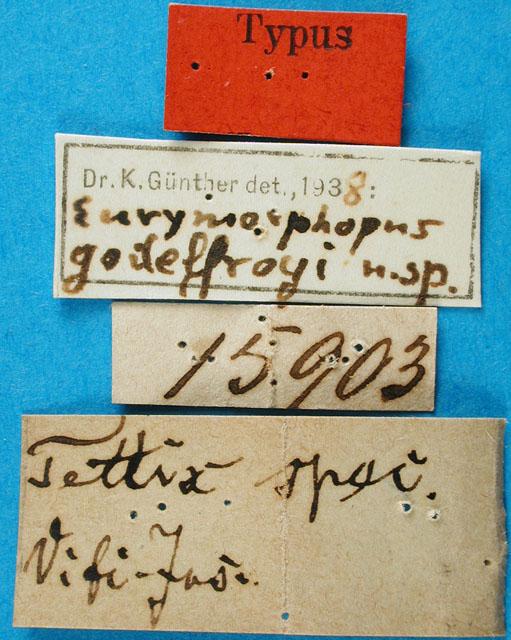 Typus
Dr. K. Günther det., 1938:
Eurymorphopus
godeffroyi n.sp.
15903
Tettix spec.
Vifi-Ins.